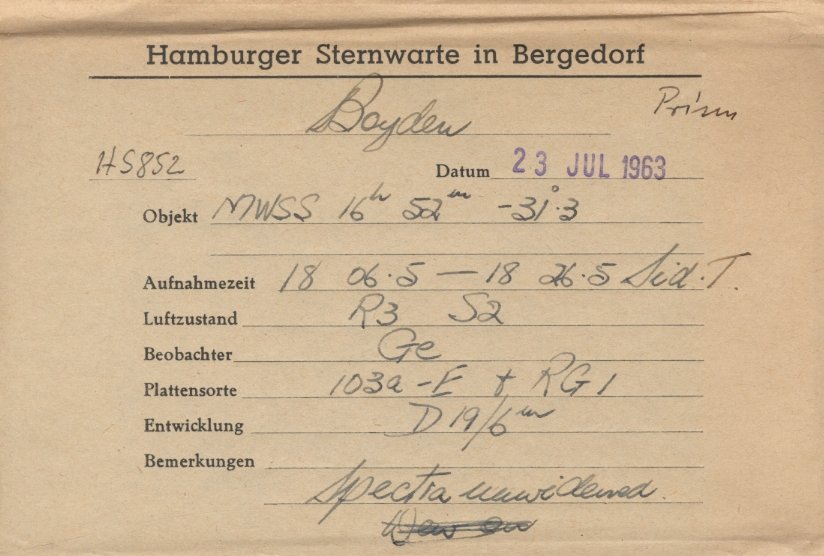 Hamburger Sternwarte in Bergedorf
Boyden Prism
HS852 Datum 23 JUL 1963
Objekt MWSS 16h 52m -31°.3
Aufnahmezeit 18 06.5 — 18 26.5 Sid. T.
Luftzustand R3 S2
Beobachter Ge
Plattensorte 103a-E + RG1
Entwicklung D19/6m
Bemerkungen
Spectra unwidened.